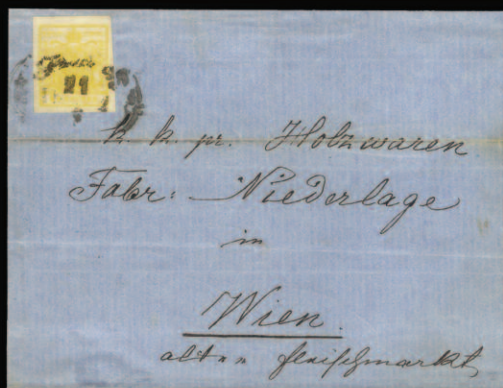 21
k. k. pr. Holzwaren
Fabr: Niederlage
in
Wien.
alten fleischmarkt